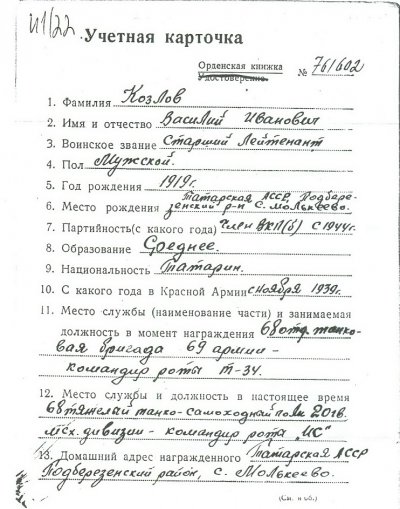 И1/22
Учетная карточка
Орденская книжка
Удостоверение № 761602
1. Фамилия Козлов
2. Имя и отчество Василий Иванович
3. Воинское звание Старший Лейтенант
4. Пол Мужской.
5. Год рождения 1919г.
Татарская АССР, Подбере-
6. Место рождения зенский р-н с. Молькеево.
7. Партийность(с какого года) Член ВКП(б) с 1944г.
8. Образование Среднее.
9. Национальность Татарин.
10. С какого года в Красной Армии с ноября 1939г.
11. Место службы (наименование части) и занимаемая
должность в момент награждения 68 отд. танко-
вая бригада 69 армии -
командир роты Т-34.
12. Место службы и должность в настоящее время
68 тяжелый танко-самоходный полк 20 гв.
мех. дивизии - командир рота "ИС"
13. Домашний адрес награжденного Татарская АССР
Подберезенский район, с. Молькеево.
(См. н об.)